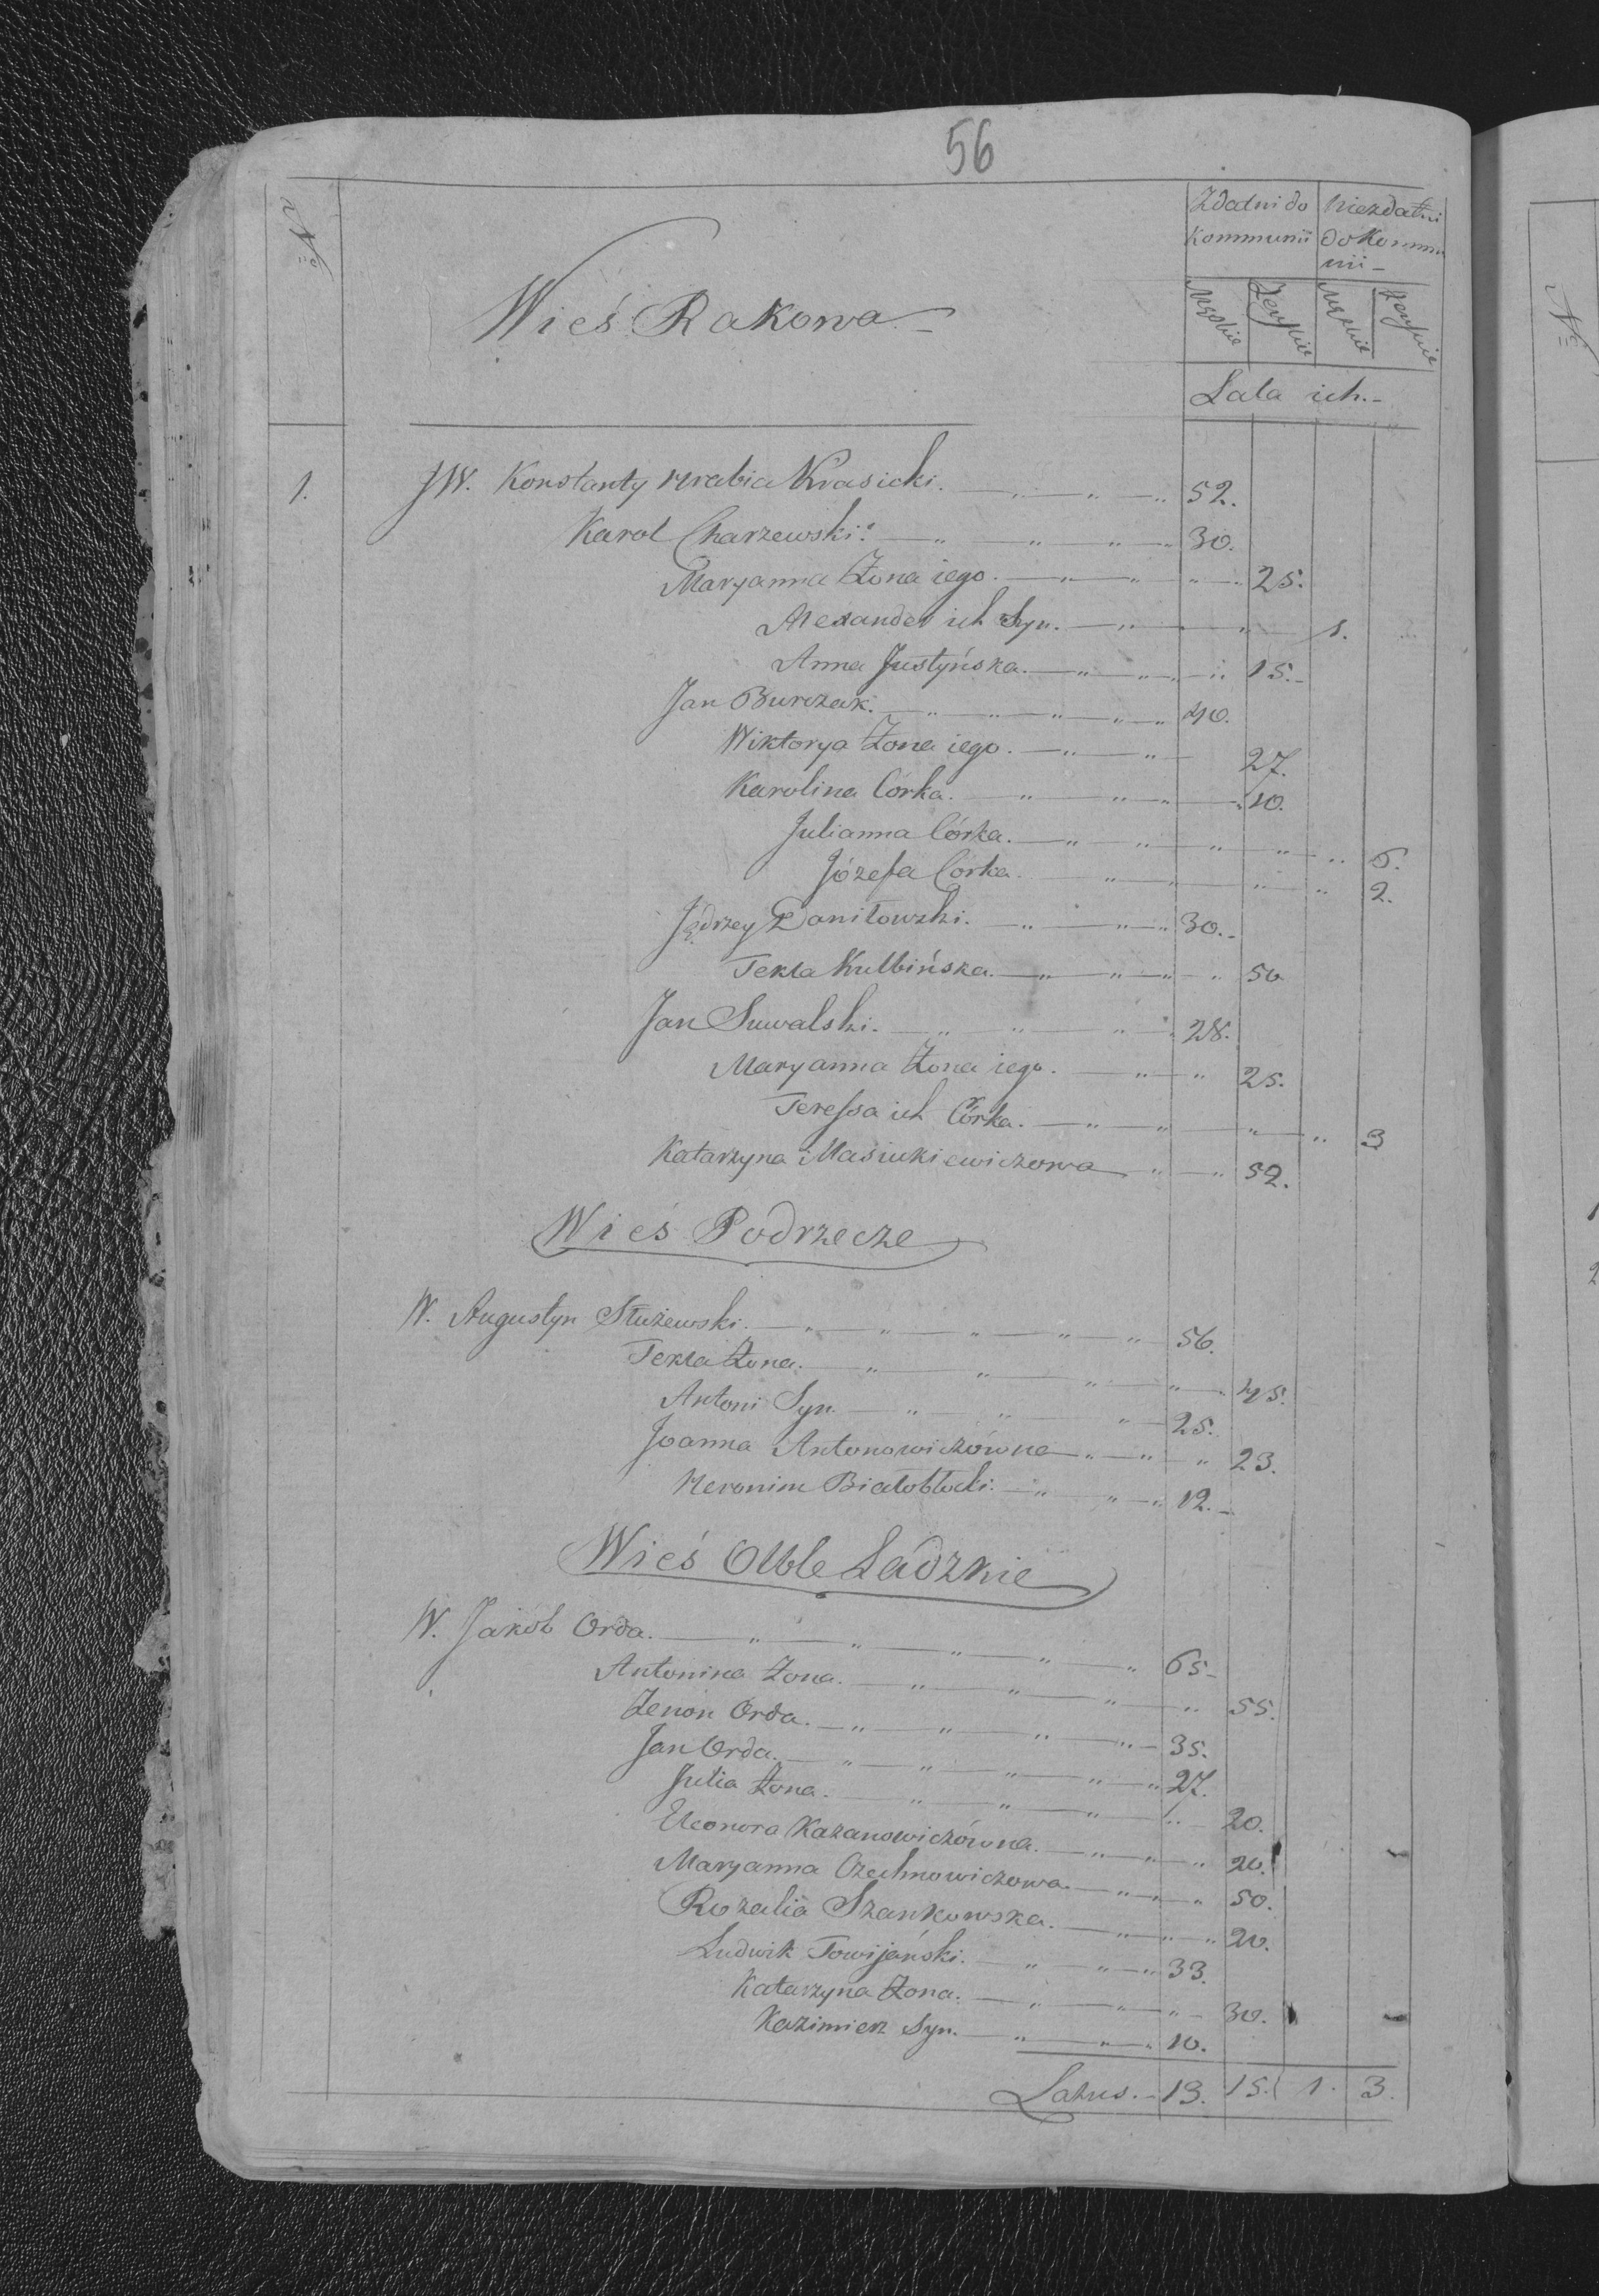 56
N° Zdatni do Niezdatni
Kommunii do Kommu
nii -
Wieś Rakowa
Męskie Żeńskie Męskie Żeńskie
Lata ich.-
1. JW. Konstanty Hrabia Krasicki. 52.
Karol Charzewski. 30.
Maryanna Żona iego. 25.
Alexander ich Syn. 1.
Anna Justyńska. 15.
Jan Burczak. 40.
Wiktorya Żona iego. 27.
Karolina Córka. 10.
Julianna Córka. 6.
Józefa Córka. 2.
Jędrzey Daniłowski. 30.
Tekla Kulbińska. 50
Jan Suwalski. 28.
Maryanna Żona iego. 25.
Teressa ich Córka. 3
Katarzyna Masiukiewiczowa 52.
Wieś Podrzecze
W. Augustyn Służewski. 56.
Tekla Żona. 45.
Antoni Syn. 25.
Joanna Antonowiczówna 23.
Heronim Białobłocki. 12.
Wieś Olble Ladzkie
W. Jakób Orda. 65
Antonina Żona. 55.
Zenon Orda. 35.
Jan Orda. 27.
Julia Żona. 20.
Eleonora Kazanowiczówna. 20.
Maryanna Ozechnowiczowa. 50.
Rozalia Szankowska. 20.
Ludwik Towijański. 33.
Katarzyna Żona. 30.
Kazimierz Syn. 10.
Latus. 13. 15. 1. 3.